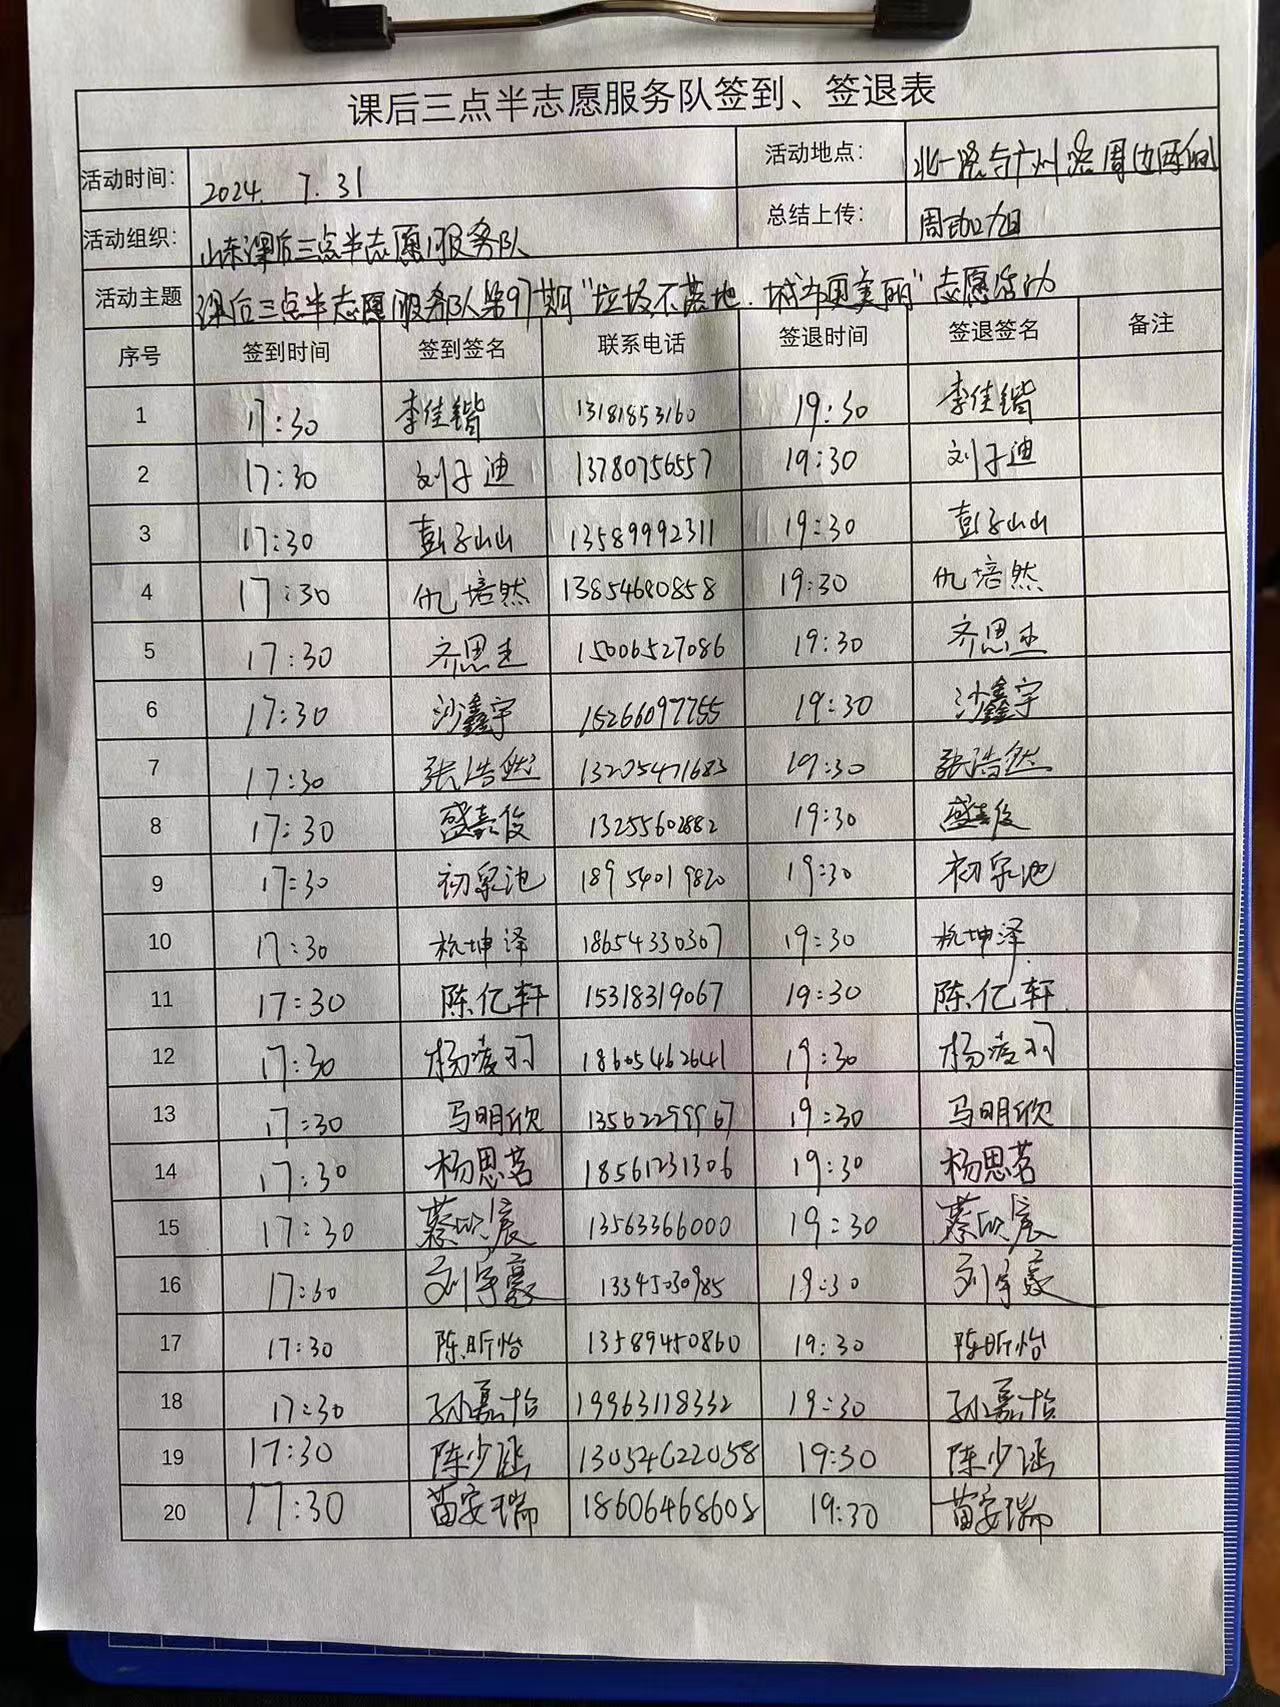 课后三点半志愿服务队签到、签退表
活动时间: 2024. 7. 31 活动地点: 北一路与广州路周边两侧
活动组织: 山东课后三点半志愿服务队 总结上传: 周加旭
活动主题 课后三点半志愿服务队第97期“垃圾不落地·城市更美丽”志愿活动
序号 签到时间 签到签名 联系电话 签退时间 签退签名 备注
1 17:30 李佳锴 13181853160 19:30 李佳锴
2 17:30 刘子迪 13780756557 19:30 刘子迪
3 17:30 彭子山山 13589992311 19:30 彭子山山
4 17:30 仇培然 13854680858 19:30 仇培然
5 17:30 齐思 15006527086 19:30 齐思
6 17:30 沙鑫宇 15266097755 19:30 沙鑫宇
7 17:30 张浩然 13205471683 19:30 张浩然
8 17:30 盛嘉俊 13255602882 19:30 盛嘉俊
9 17:30 初泉池 18954019820 19:30 初泉池
10 17:30 杭坤泽 18654330307 19:30 杭坤泽
11 17:30 陈亿轩 15318319067 19:30 陈亿轩
12 17:30 杨凌羽 18605462641 19:30 杨凌羽
13 17:30 马明欣 13562299967 19:30 马明欣
14 17:30 杨思茗 18561231306 19:30 杨思茗
15 17:30 蔡欣宸 13563366000 19:30 蔡欣宸
16 17:30 刘宇豪 13345030985 19:30 刘宇豪
17 17:30 陈昕怡 13589450860 19:30 陈昕怡
18 17:30 孙嘉怡 19963118332 19:30 孙嘉怡
19 17:30 陈少涵 13054622058 19:30 陈少涵
20 17:30 苗安瑞 18606468608 19:30 苗安瑞